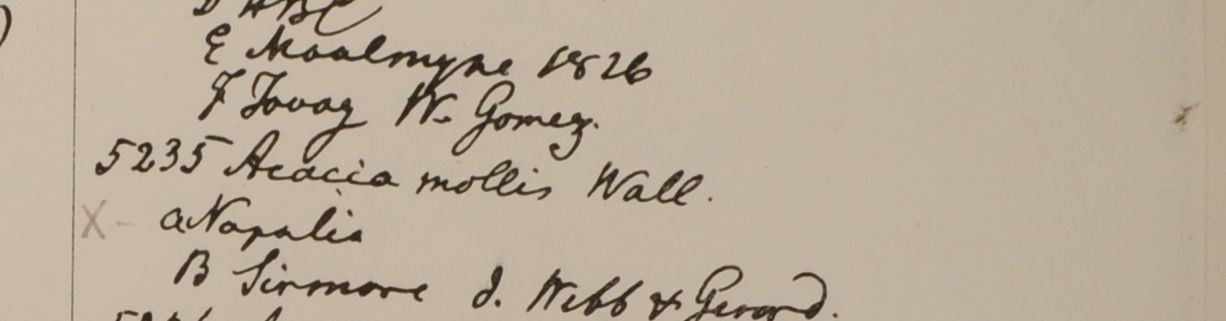 D HBC
E Moalmyne 1826
F Tavoy W. Gomez.
5235 Acacia mollis Wall.
X - a Napalia
B Sirmore J. Webb & Gerard.